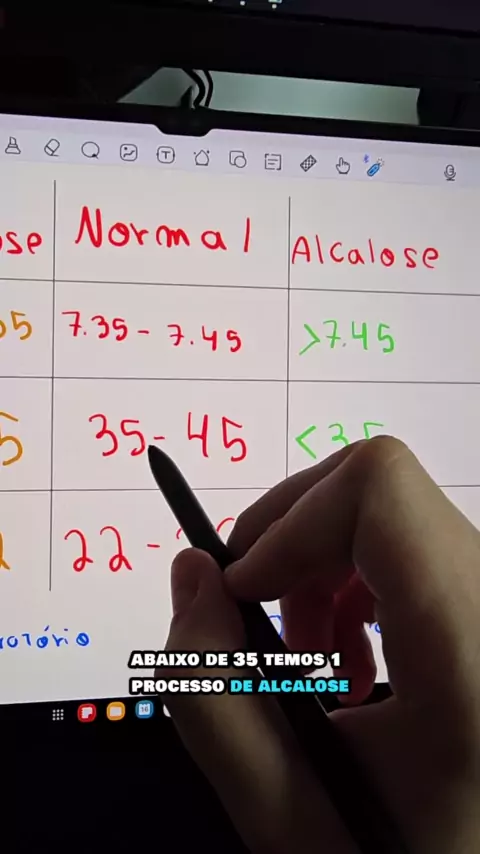 ose Normal Alcalose
7.35 - 7.45 >7.45
35 - 45 <35
22 -
ABAIXO DE 35 TEMOS 1
PROCESSO DE ALCALOSE